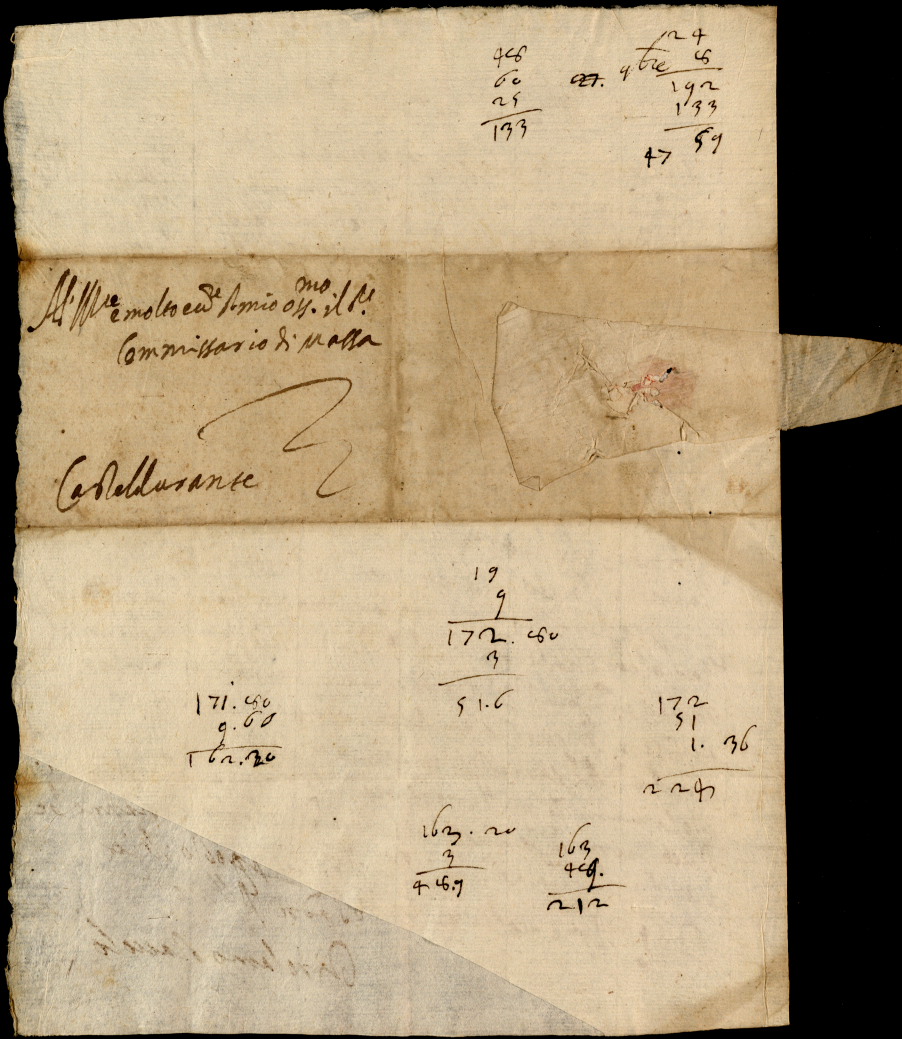 48
60
25
133
9bre
24
8
192
133
59
47
All' Ill.re e molto ecc.te S.r mio oss.mo il S.r
Commissario di Massa
Casteldurante
19
9
172. 80
3
51.6
171. 80
9. 60
162. 20
172
51
1. 36
224
163. 20
3
48.9
163
49.
212